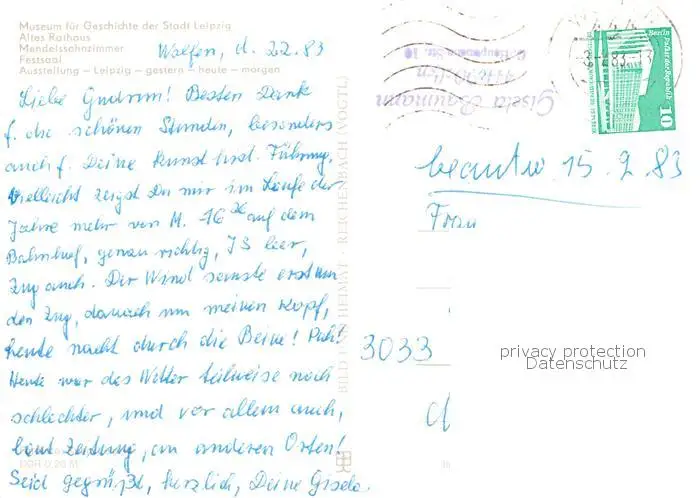 Museum für Geschichte der Stadt Leipzig
Altes Rathaus
Mendelssohnzimmer
Festsaal
Ausstellung – Leipzig – gestern – heute – morgen
Wolfen, d. 7.2.83
Liebe Gudrun! Besten Dank
f. die schönen Stunden, besonders
auch f. Deine kunsthist. Führung.
Vielleicht zeigst Du mir im Laufe der
Jahre mehr von M. 16 36 auf dem
Bahnhof, genau richtig, leer,
Zug auch. Der Wind sauste erst um
den Zug, danach um meinen Kopf,
heute nacht durch die Beine! Puh!
Heute war das Wetter teilweise noch
schlechter, und vor allem auch,
laut Zeitung, an anderen Orten!
Seid gegrüßt, herzlich, Deine Gisela.
BILD HEIMAT REICHENBACH (VOGTL
Gisela Baumann
Berlin Palast der Republik
10
83
beantw. 15.2.83
Frau
3033
privacy protection
Datenschutz